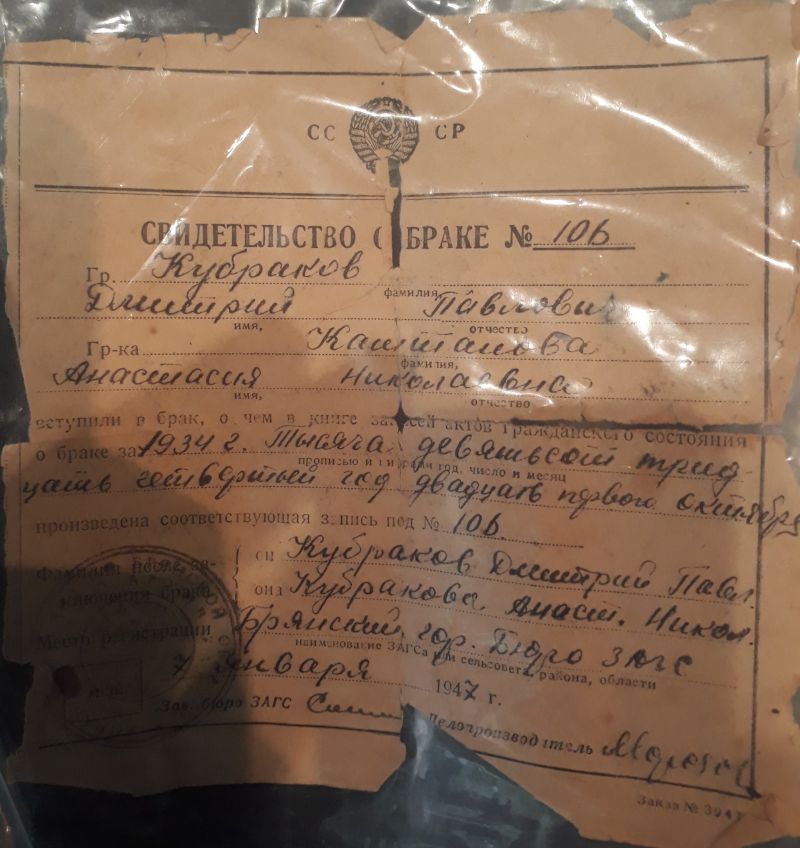 СС СР
СВИДЕТЕЛЬСТВО О БРАКЕ № 106
Гр. Кубраков
фамилия
Дмитрий Павлович
имя, отчество
Гр-ка Каштанова
фамилия,
Анастасия Николаевна
имя, отчество
вступили в брак, о чем в книге записей актов гражданского состояния
о браке за 1934 г. Тысяча девятьсот трид
прописью и цифрами год, число и месяц
цать четвертый год двадцать первого октября
произведена соответствующая запись под № 106.
Фамилия после за- он Кубраков Дмитрий Павл.
ключения брака она Кубракова Анаст. Никол.
Место регистрации Брянский гор. Бюро ЗАГС
наименование ЗАГСа или сельсовета, района, области
7 января 1947 г.
М. П.
Зав. бюро ЗАГС Делопроизводитель
Заказ №